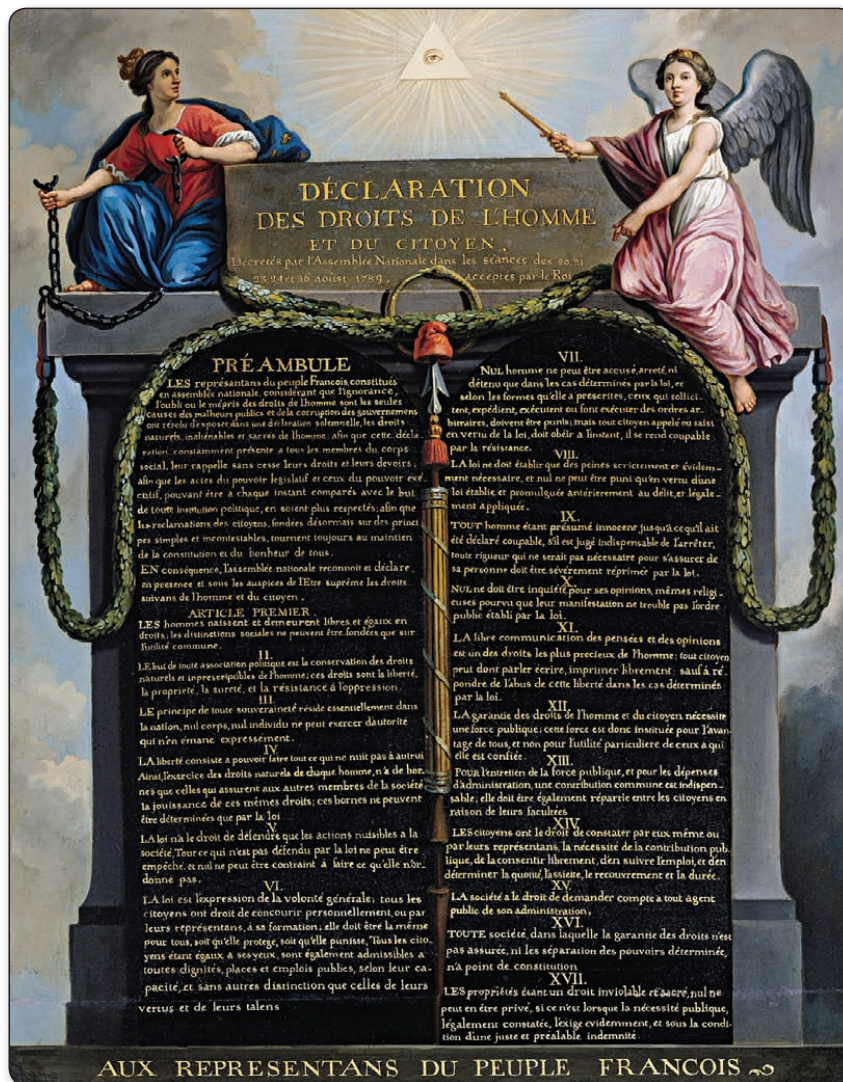 DÉCLARATION
DES DROITS DE L'HOMME
ET DU CITOYEN,
Décretés par l'Assemblée Nationale dans les séances des 20, 21
23, 24 et 26 aoûst 1789, acceptés par le Roi
PRÉAMBULE
LES représantans du peuple Francois, constitués
en assemblée nationale, considérant que l'ignorance,
l'oubli ou le mépris des droits de l'homme sont les seules
causes des malheurs publics et de la corruption des gouvernemens
ont résolu d'exposer dans une déclaration solemnelle, les droits
naturels, inaliénables et sacrés de l'homme; afin que cette décla
ration, constamment présente a tous les membres du corps
social, leur rappelle sans cesse leurs droits et leurs devoirs;
afin que les actes du pouvoir legislatif et ceux du pouvoir exé
cutif, pouvant être a chaque instant comparés avec le but
de toute institution politique, en soient plus respectés; afin que
les reclamations des citoyens, fondées désormais sur des princi
pes simples et incontestables, tournent toujours au maintien
de la constitution et du bonheur de tous.
EN conséquence, l'assemblée nationale reconnoit et déclare,
en presence et sous les auspices de l'Etre suprême les droits
suivans de l'homme et du citoyen.
ARTICLE PREMIER.
LES hommes naissent et demeurent libres et égaux en
droits; les distinctions sociales ne peuvent être fondées que sur
l'utilité commune.
II.
LE but de toute association politique est la conservation des droits
naturels et inprescriptibles de l'homme; ces droits sont la liberté,
la propriété, la sureté, et la résistance à l'oppression.
III.
LE principe de toute souveraineté réside essentiellement dans
la nation, nul corps, nul individu ne peut exercer d'autorité
qui n'en émane expressément.
IV.
LA liberté consiste a pouvoir faire tout ce qui ne nuit pas à autrui
Ainsi, l'exercice des droits naturels de chaque homme, n'a de bor
nes que celles qui assurent aux autres membres de la société
la jouissance de ces mêmes droits; ces bornes ne peuvent
être déterminées que par la loi
V.
LA loi n'a le droit de défendre que les actions nuisibles a la
société. Tout ce qui n'est pas défendu par la loi ne peut être
empêché, et nul ne peut être contraint à faire ce qu'elle n'or-
donne pas.
VI.
LA loi est l'expression de la volonté générale; tous les
citoyens ont droit de concourir personnellement, ou par
leurs représentans, à sa formation; elle doit être la même
pour tous, soit qu'elle protege, soit qu'elle punisse. Tous les cito
yens étant égaux a ses yeux, sont également admissibles a
toutes dignités, places et emplois publics, selon leur ca-
pacité, et sans autres distinction que celles de leurs
vertus et de leurs talens
VII.
NUL homme ne peut être accusé, arreté, ni
détenu que dans les cas déterminés par la loi, et
selon les formes qu'elle a prescrites, ceux qui sollici-
tent, expédient, exécutent ou font exécuter des ordres ar-
bitraires, doivent être punis; mais tout citoyen appelé ou saisi
en vertu de la loi, doit obéir a l'instant, il se rend coupable
par la résistance.
VIII.
LA loi ne doit établir que des peines strictement et évidem-
ment nécessaire, et nul ne peut être puni qu'en vertu d'une
loi établie et promulguée antérierement au délit, et légale-
ment appliquée.
IX.
TOUT homme étant présumé innocent jusqu'a ce qu'il ait
été déclaré coupable, s'il est jugé indispensable de l'arrêter,
toute rigueur qui ne serait pas nécessaire pour s'assurer de
sa personne doit être sévèrement réprimée par la loi.
X.
NUL ne doit être inquiété pour ses opinions, mêmes religi-
euses pourvu que leur manifestation ne trouble pas l'ordre
public établi par la loi
XI.
LA libre communication des pensées et des opinions
est un des droits les plus precieux de l'homme; tout citoyen
peut dont parler écrire, imprimer librement: sauf à ré
pondre de l'abus de cette liberté dans les cas déterminés
par la loi.
XII.
LA garantie des droits de l'homme et du citoyen nécessite
une force publique; cette force est donc instituée pour l'avan
tage de tous, et non pour l'utilité particuliere de ceux a qui
elle est confiée.
XIII.
POUR l'entretien de la force publique, et pour les dépenses
d'administration, une contribution commune est indispen-
sable; elle doit être également répartie entre les citoyens en
raison de leurs facultées
XIV.
LES citoyens ont le droit de constater par eux même ou
par leurs représentans, la nécessité de la contribution pub-
lique, de la consentir librement, d'en suivre l'emploi, et d'en
déterminer la quotité, l'assiette, le recouvrement et la durée.
XV.
LA société a le droit de demander compte a tout agent
public de son administration.
XVI.
TOUTE société, dans laquelle la garantie des droits n'est
pas assurée, ni les séparation des pouvoirs déterminée,
n'a point de constitution
XVII.
LES propriétés étant un droit inviolable et sacré, nul ne
peut en être privé, si ce n'est lorsque la nécessité publique,
légalement constatée, l'exige evidemment, et sous la condi
tion d'une juste et préalable indemnité.
AUX REPRESENTANS DU PEUPLE FRANCOIS